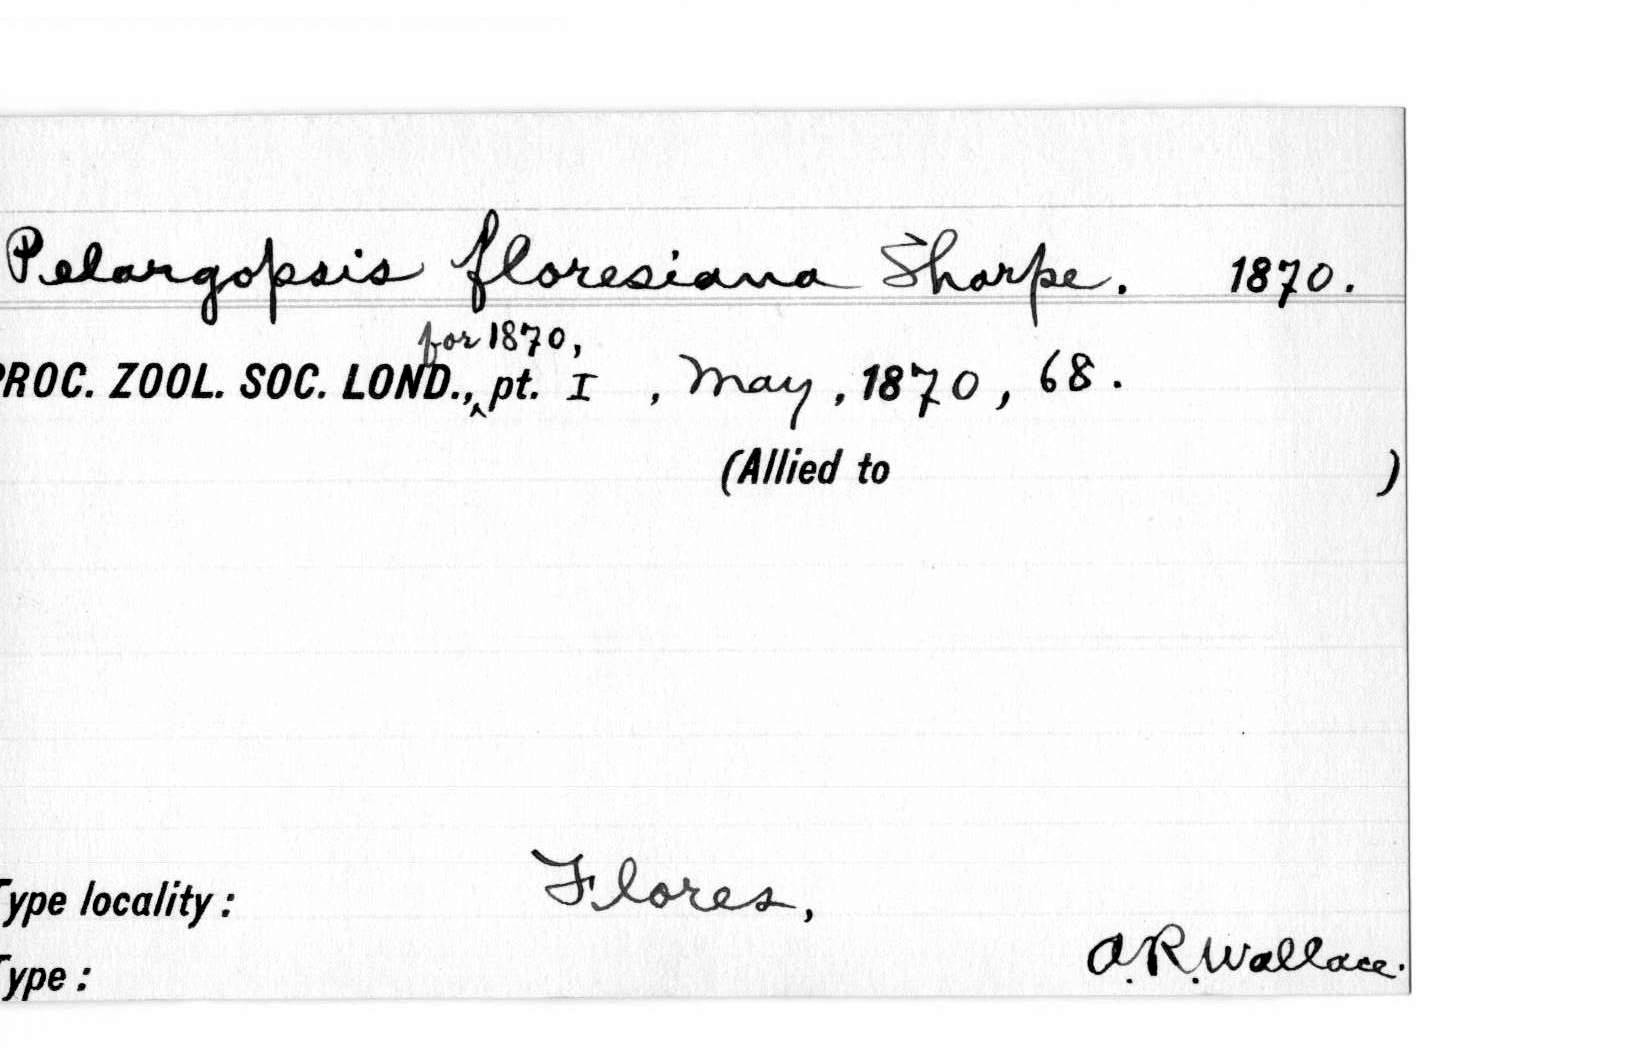 Pelargopsis floresiana Sharpe. 1870.
for 1870,
PROC. ZOOL. SOC. LOND., ^ pt. I , May, 1870, 68.
(Allied to )
Type locality: Flores,
Type: A.R. Wallace.